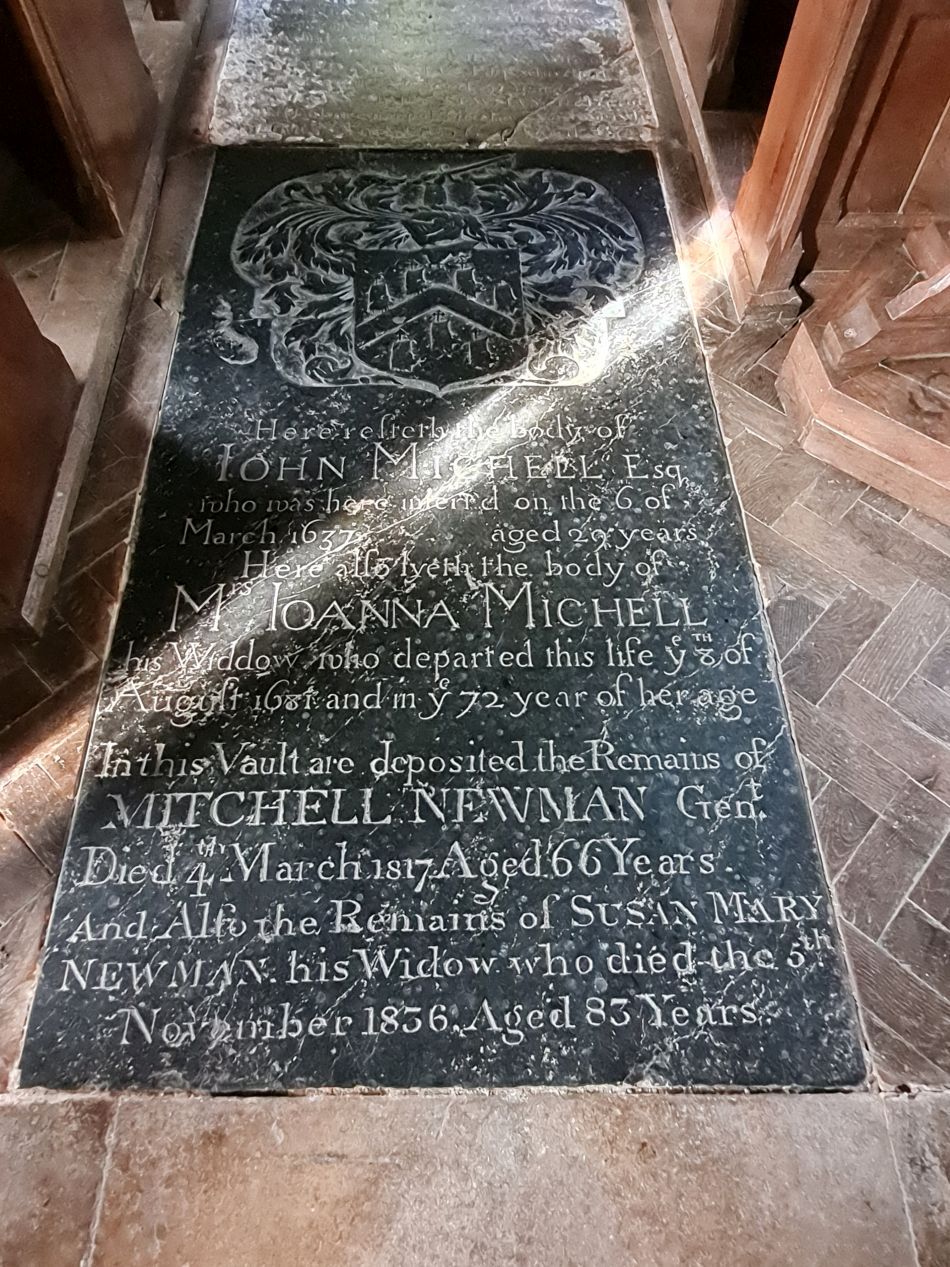 Here resteth the body of
IOHN MICHELL Esq
who was here interr'd on the 6 of
March 1637 aged 29 years
Here alſo lyeth the body of
Mʳˢ IOANNA MICHELL
his Widdow who departed this life yᵉ 8ᵀᴴ of
Auguſt 1681 and in yᵉ 72 year of her age
In this Vault are deposited the Remains of
MITCHELL NEWMAN Genᵗ.
Died 4ᵗʰ March 1817 Aged 66 Years
And Alſo the Remains of SUSAN MARY
NEWMAN his Widow who died the 5ᵗʰ
November 1836, Aged 83 Years